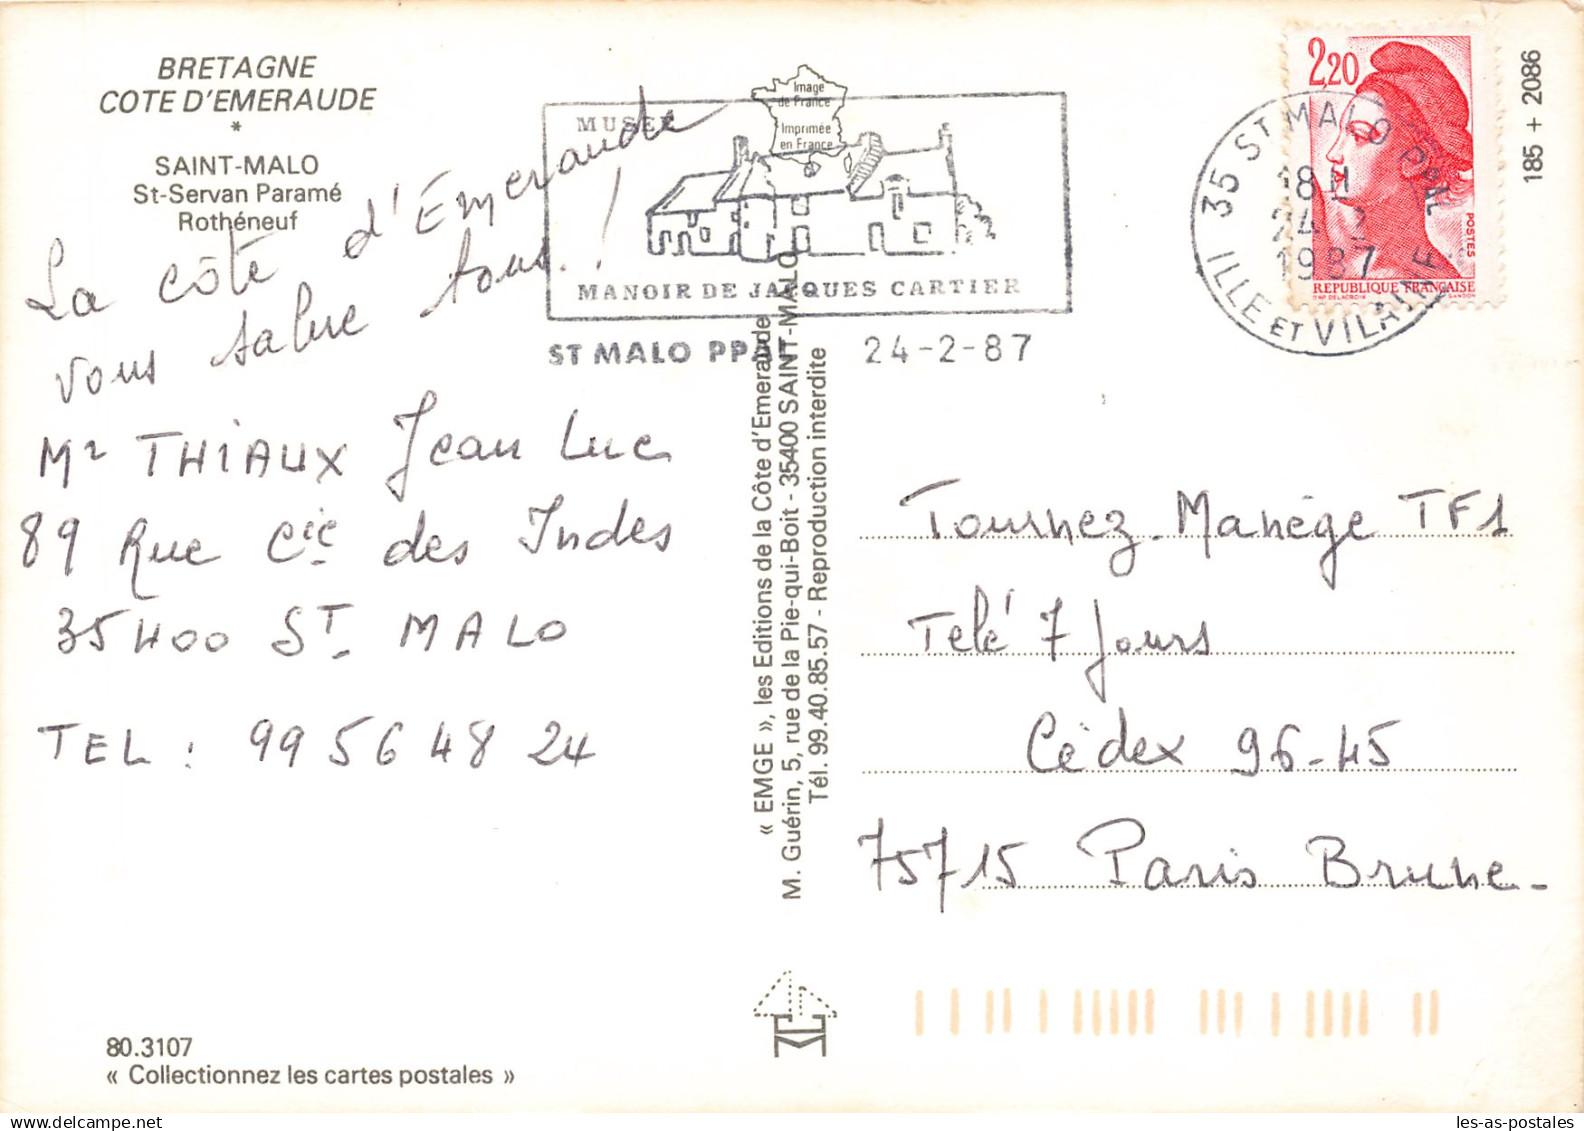 BRETAGNE
COTE D'EMERAUDE
*
SAINT-MALO
St-Servan Paramé
Rothéneuf
La côte d'Emeraude
vous salue tous !
Mr THIAUX Jean Luc
89 Rue Cie des Indes
35400 ST MALO
TEL : 99 56 48 24
80.3107
« Collectionnez les cartes postales »
Image
de France
Imprimée
en France
MUSEE
MANOIR DE JACQUES CARTIER
ST MALO PPAL 24-2-87
« EMGE », les Editions de la Côte d'Emeraude
M. Guérin, 5, rue de la Pie-qui-Boit - 35400 SAINT-MALO
Tél. 99.40.85.57 - Reproduction interdite
35 ST MALO PPAL
18H
24-2
1987
ILLE ET VILAINE
2,20
POSTES
REPUBLIQUE FRANÇAISE
D'AP. DELACROIX GANDON
185 + 2086
Tournez. Manège TF1
Télé 7 Jours
Cédex 96-45
75715 Paris Brune-
les-as-postales